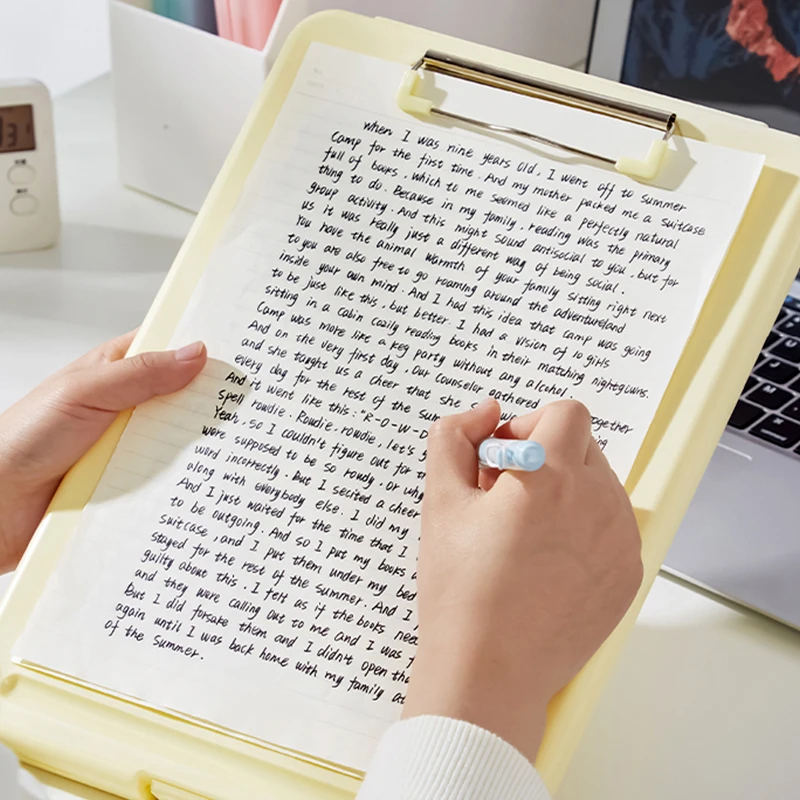 when I was nine years old, I went off to summer
Camp for the first time. And my mother packed me a suitcase
full of books, which to me seemed like a perfectly natural
thing to do. Because in my family, reading was the primary
group activity. And this might sound antisocial to you, but for
us it was really just a different way of being social.
You have the animal warmth of your family sitting right next
to you are also free to go roaming around the adventureland
inside your own mind. And I had this idea that camp was going
to be just like this, but better. I had a vision of 10 girls
sitting in a cabin cozily reading books in their matching nightgowns.
Camp was more like a keg party without any alcohol.
And on the very first day, our counselor gathered together
and she taught us a cheer that she
every day for the rest of the sum
And it went like this: "R-O-W-D
spell rowdie. Rowdie, rowdie, let's g
Yeah, so I couldn't figure out for t
were supposed to be so rowdy, or why
word incorrectly. But I secited a cheer
along with everybody else. I did my
And I just waited for the time that I
to be outgoing. And so I put my books a
suitcase, and I put them under my bed
stayed for the rest of the summer. And I
guilty about this. I felt as if the books nee
and they were calling out to me and I was
But I did forsake them and I didn't open tha
again until I was back home with my family at
of the summer.